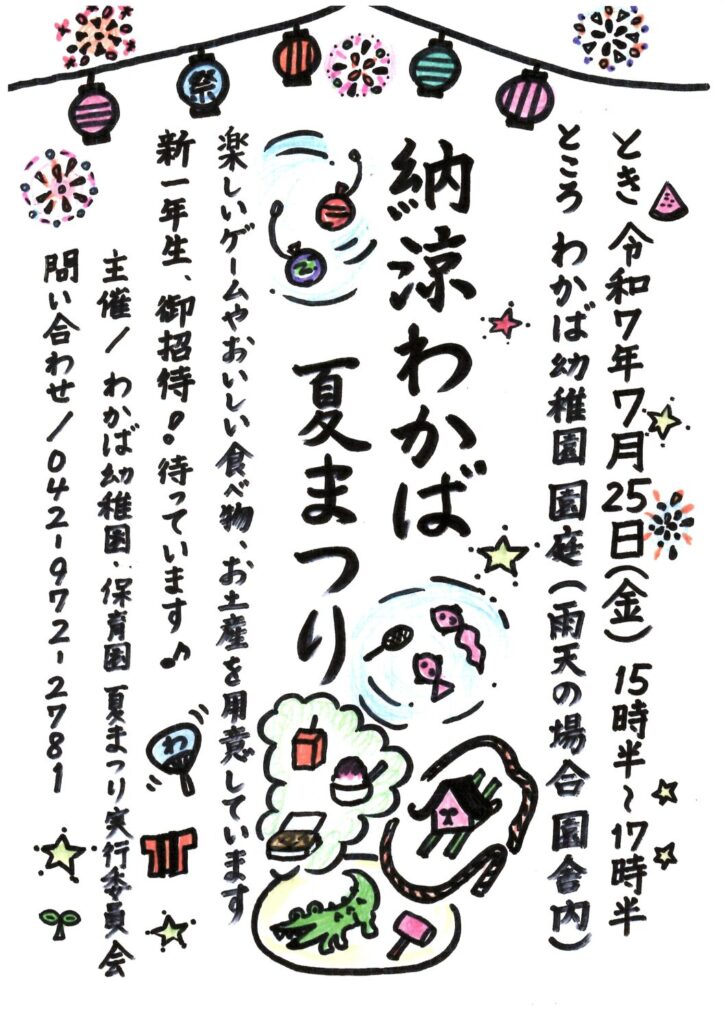 とき 令和7年7月25日(金) 15時半~17時半
ところ わかば幼稚園 園庭(雨天の場合 園舎内)
納涼わかば
夏まつり
楽しいゲームやおいしい食べ物、お土産を用意しています
新一年生、御招待!待っています♪
主催/わかば幼稚園・保育園 夏まつり実行委員会
問い合わせ/042-972-2781
祭
わ